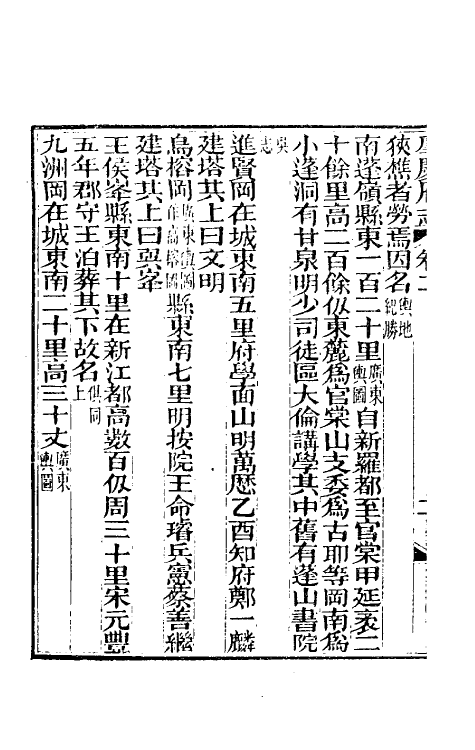 慶府志 卷二
狹樵者勞焉因名輿地紀勝
南蓬嶺縣東一百二十里廣東輿圖自新羅都至官棠甲延袤二
十餘里高二百餘仭東麓爲官棠山支委爲古耶等岡南爲
小蓬洞有甘泉明少司徒區大倫講學其中舊有蓬山書院
吳志
進賢岡在城東南五里府學面山明萬曆乙酉知府鄭一麟
建塔其上曰文明
烏榕岡廣東輿圖作高榕岡縣東南七里明按院王命璿兵憲蔡善繼
建塔其上曰巽峯
王侯峯縣東南十里在新江都高數百仭周三十里宋元豐
五年郡守王泊葬其下故名俱同上
九洲岡在城東南二十里高三十丈廣東輿圖